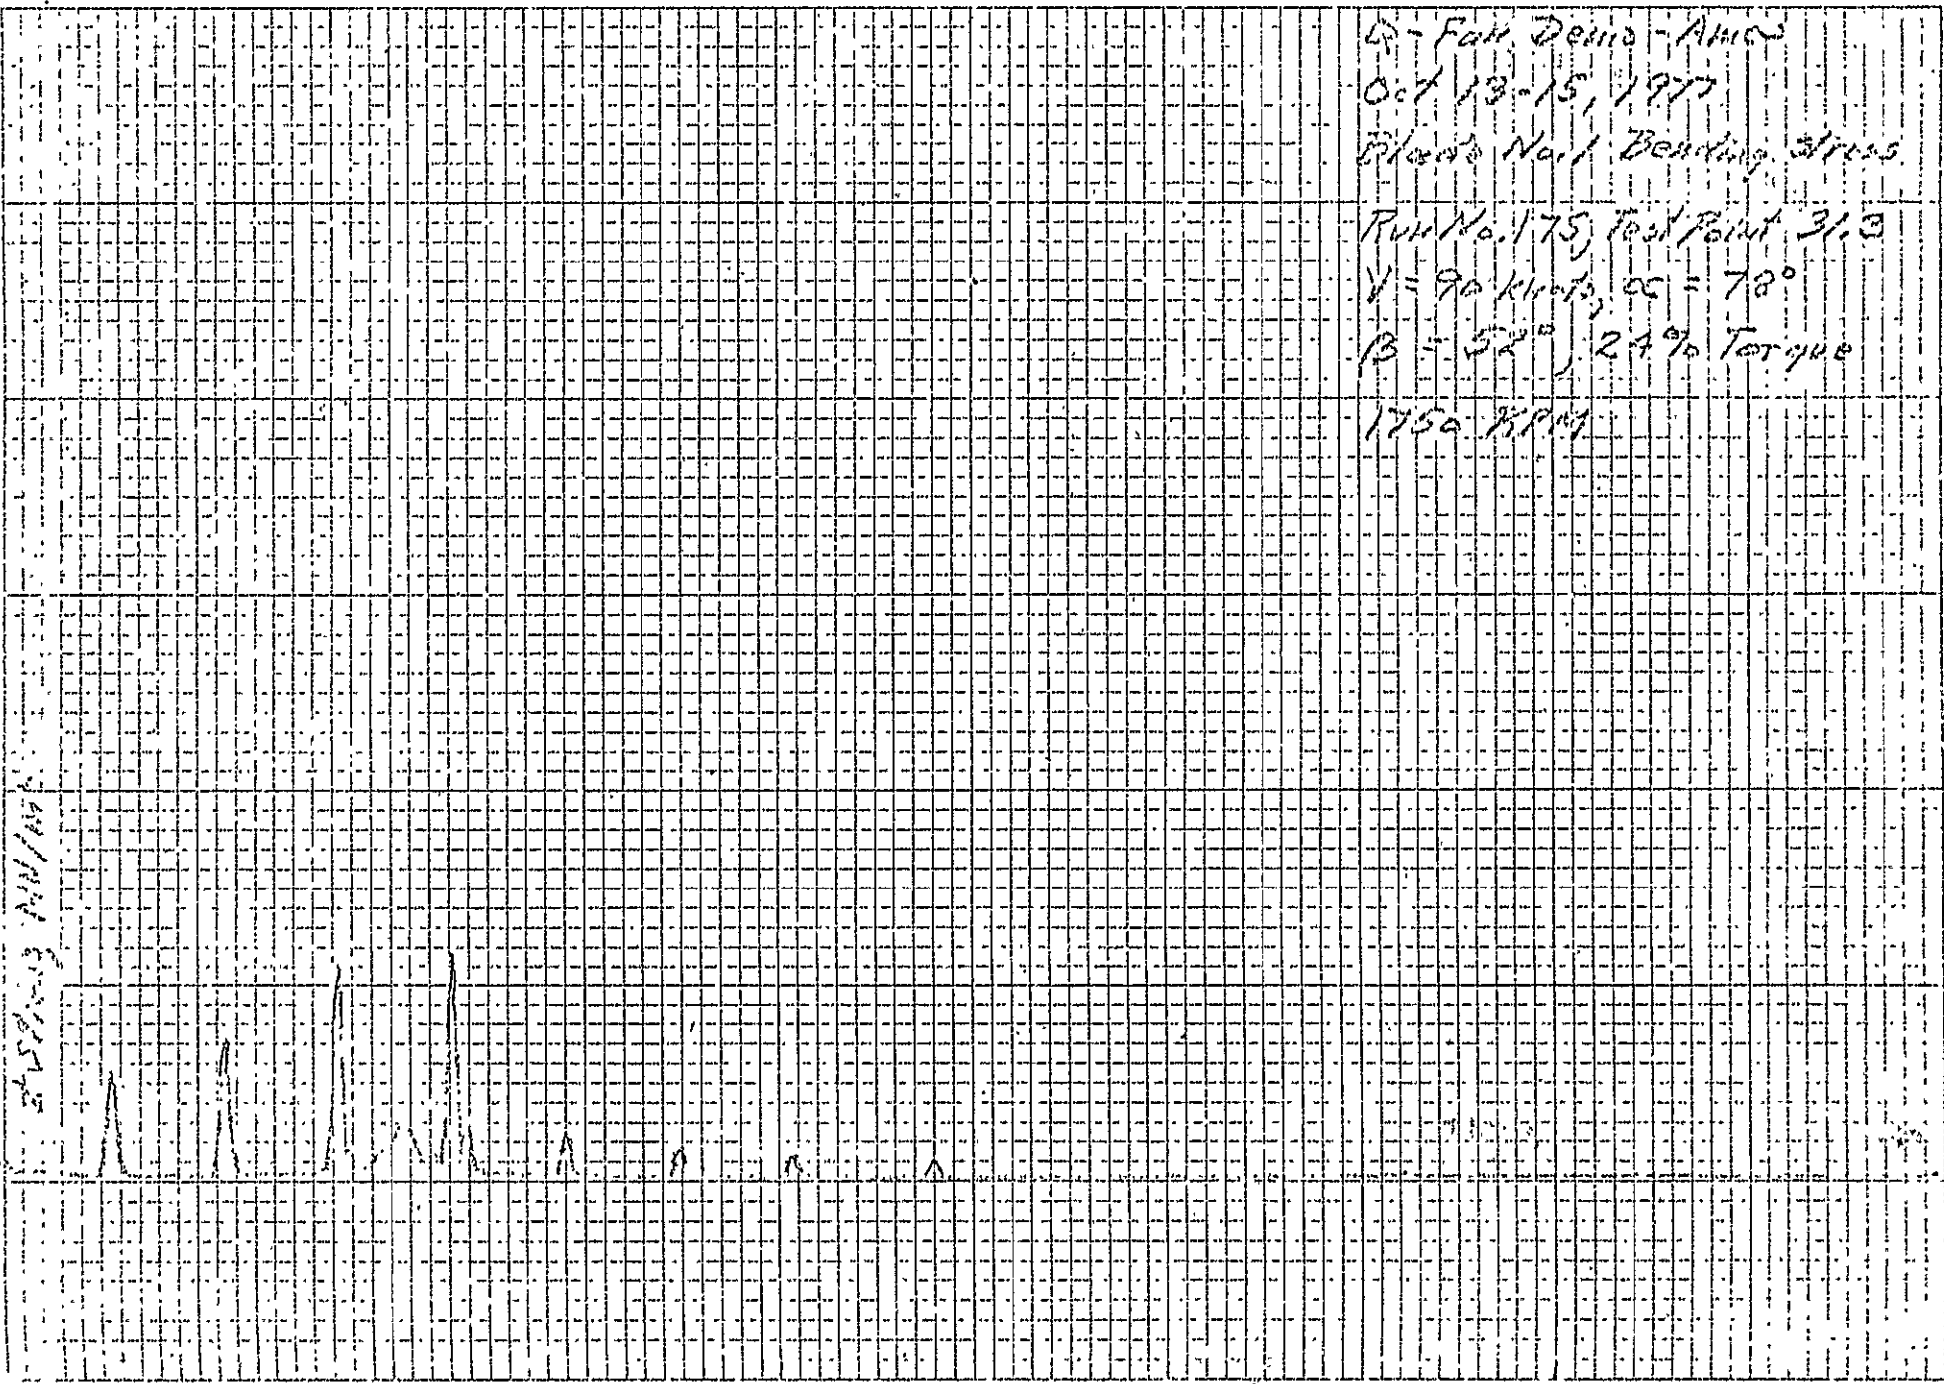 Q-Fan Demo - Ames
Oct 13-15, 1977
Blade No. 1 Bending Stress
Run No. 175, Test Point 31.3
V = 90 knots, α = 78°
β = 52°, 24% Torque
1750 RPM
MN/m²